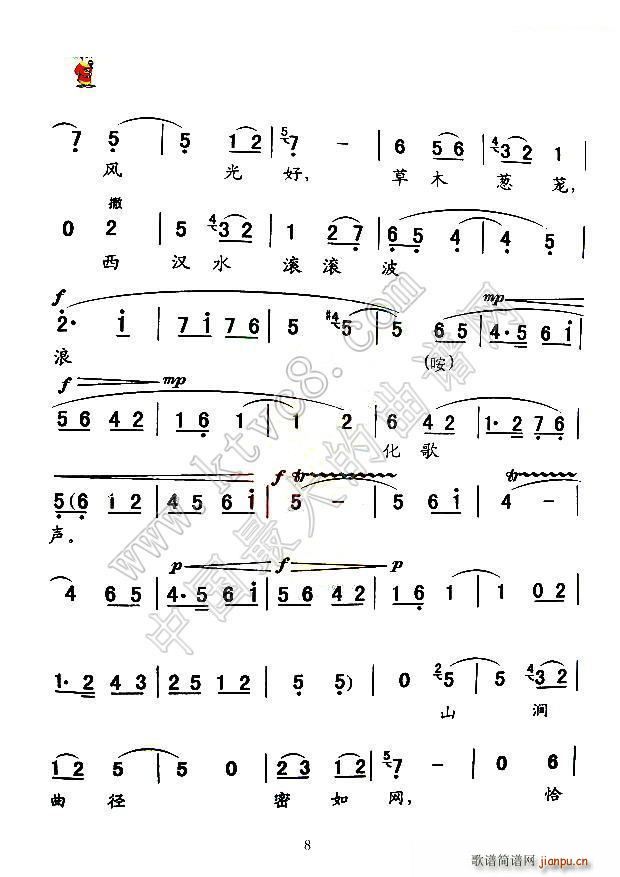 7 5 | 5 1 2 | 5 7 - | 6 5 6 | 4 3 2 1 |
风 光 好, 草 木 葱 茏,
撒
0 2 | 5 4 3 2 | 1 2 7 | 6 5 4 | 4 5 |
西 汉 水 滚 滚 波
f mp
2· i | 7 i 7 6 | 5 #4 5 | 5 6 5 | 4·5 6 i |
浪 (咹)
f mp
5 6 4 2 | 1 6 1 | 1 2 | 6 4 2 | 1· 2 7 6 |
化 歌
f tr tr
5 (6 i 2 | 4 5 6 i | 5 - | 4 5 6 i | 4 - |
声。
p f p
4 6 5 | 4·5 6 i | 5 6 4 2 | 1 6 1 | 1 0 2 |
1·2 4 3 | 2 5 1 2 | 5 5) | 0 2 5 | 5 4 3 2 |
山 涧
1 2 5 | 5 0 | 2 3 1 2 | 5 7 - | 0 6 |
曲 径 密 如 网, 恰
8
歌谱简谱网
jianpu.cn
www.ktvc8.com
中国最人的曲谱网